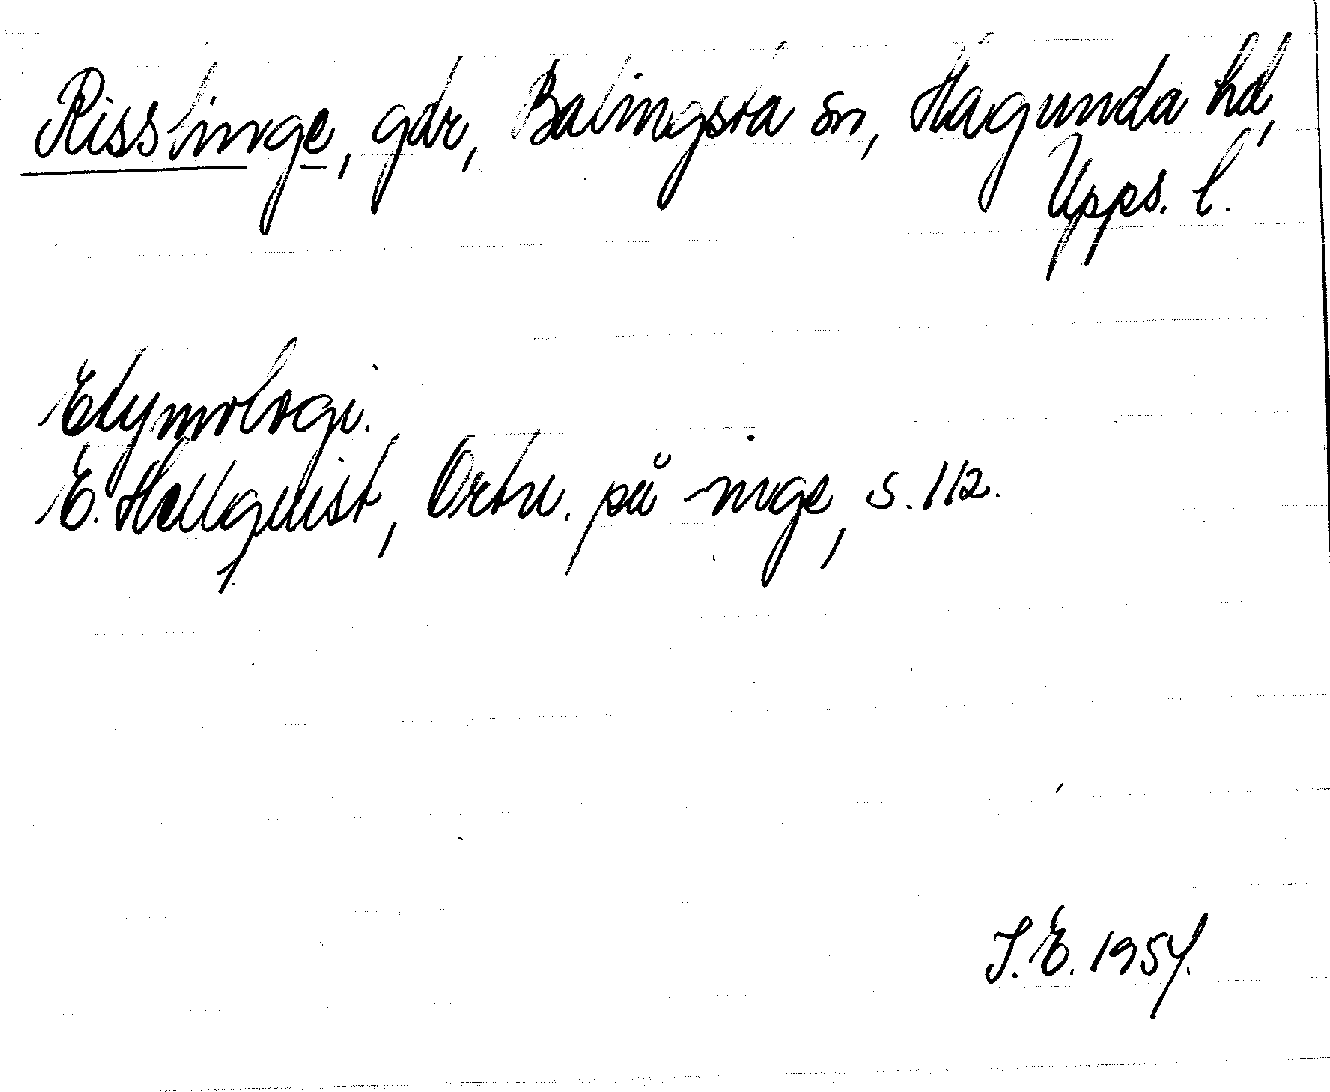 Risslinge, gdr, Balingsta sn, Hagunda hd,
Upps. l.
Etymologi.
E. Hellquist, Ortn. på inge, s. 112.
S. E. 1954.